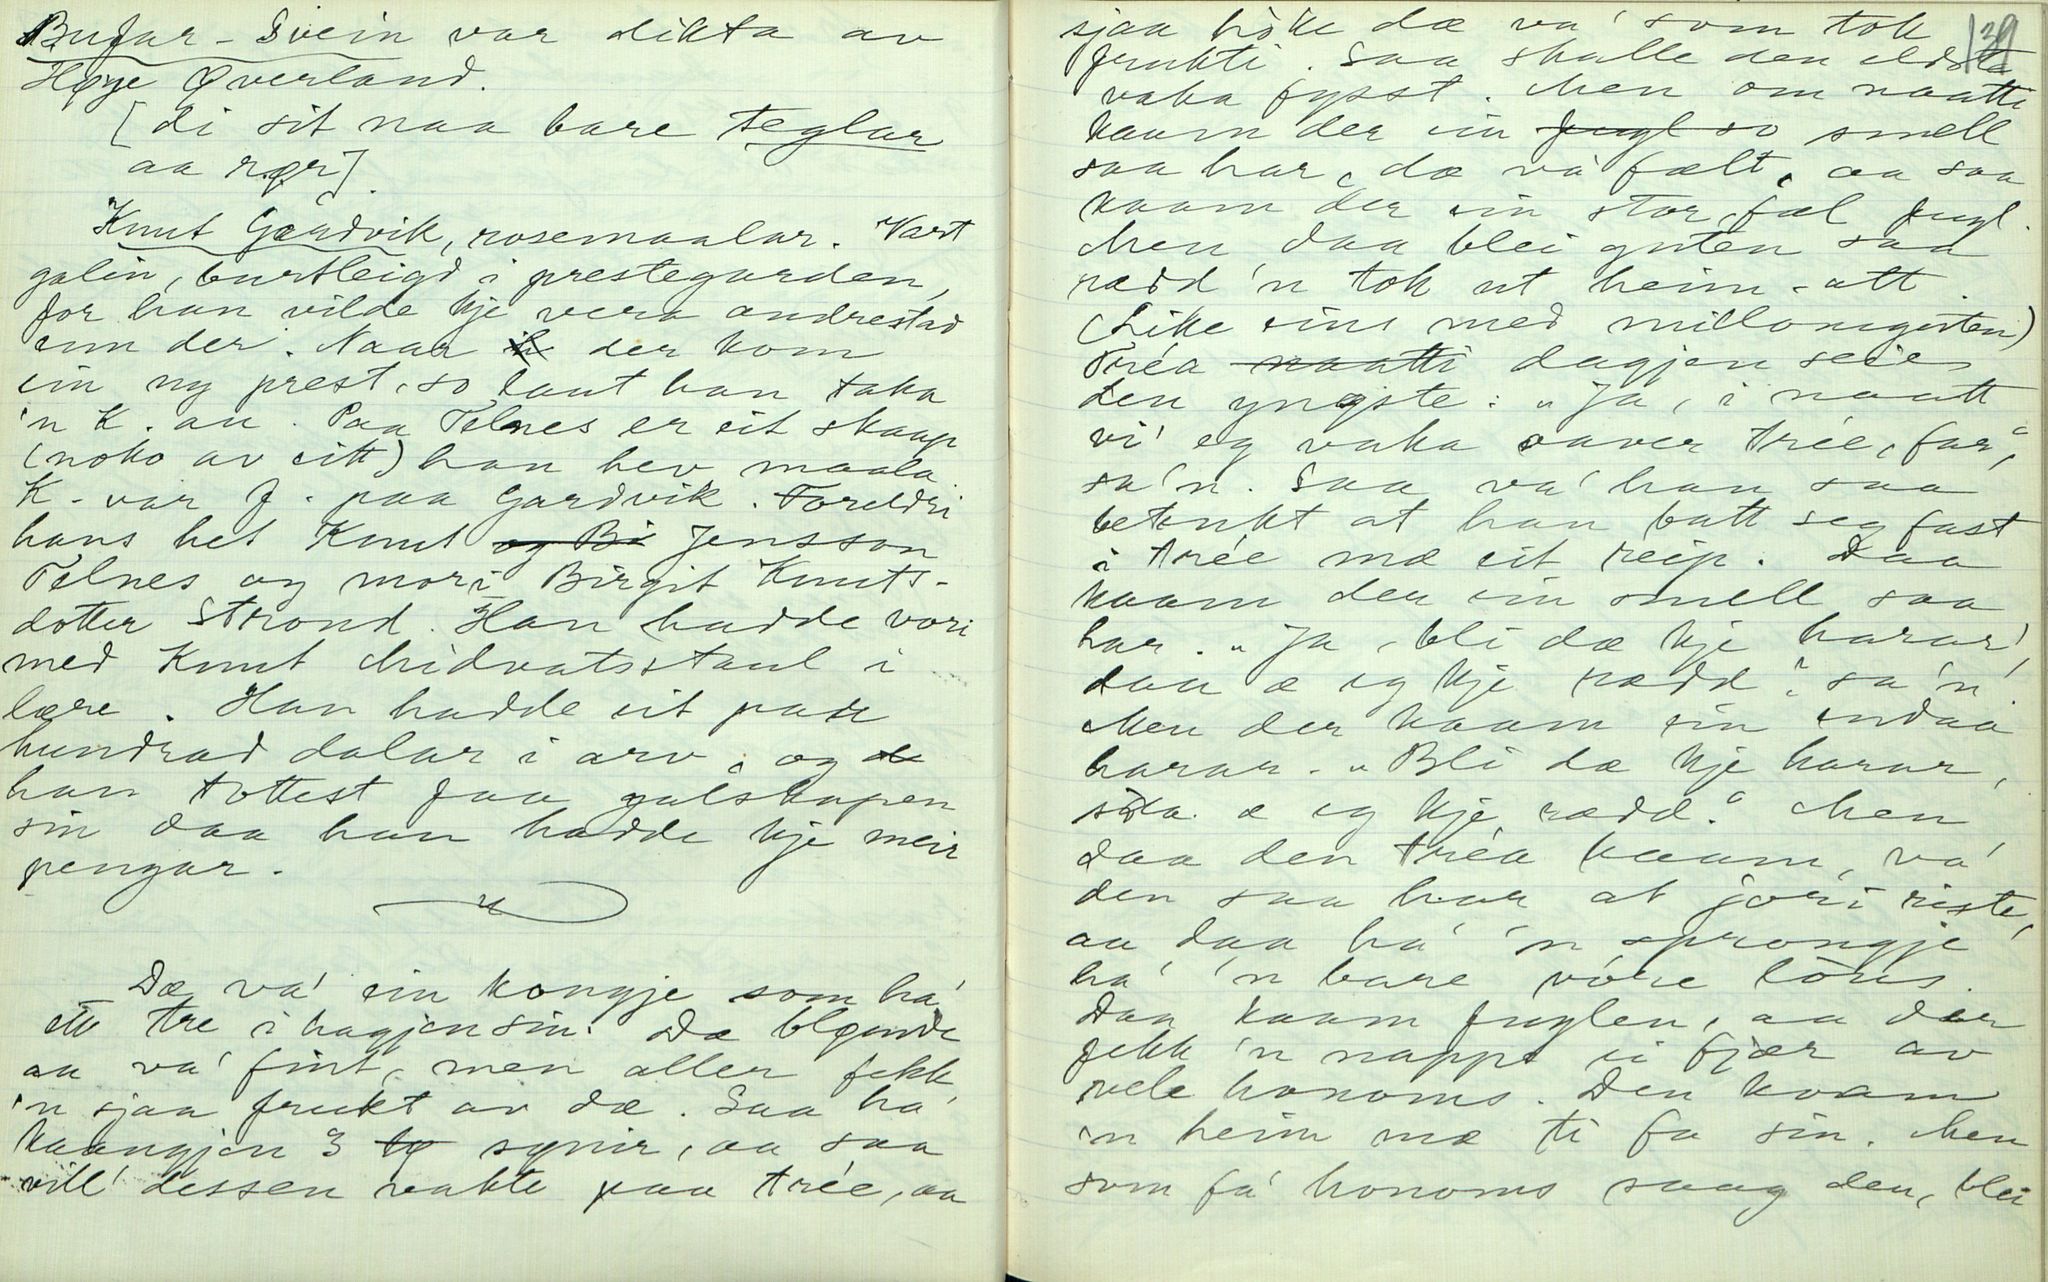 Bufar-Svein var dikta av
Høye Øverland.
[di sit naa bare teglar
aa rør].
Knut Gardvik, rosemaalar. Vart
galin, burtleigd i prestegarden,
for han vilde kje vera andrestad
enn der. Naar der kom
ein ny prest, so laut han taka
'n K. an. Paa Telnes er eit skaap
(noko av eitt) han hev maala
K. var f. paa Gardvik. Foreldri
hans het Knut og Bi Jensson
Telnes og mori Birgit Knuts-
dotter Strond. Han hadde vori
med Knut Midvatsstaul i
lære. Han hadde eit par
hundrad dalar i arv, og de
han tottest faa galskapen
sin daa han hadde kje meir
pengar.
Dæ va' ein kongje som ha'
ett tre i hagjen sin. Dæ blømde
aa va' fint, men aller fekk
'n sjaa frukt av dæ. Saa ha'
kaangjen 3 sønir, aa saa
vill' dessen vakte paa trée, aa
139
sjaa hòke dæ va' som tok
frukti. Saa skulle den eldste
vaka fysst. Men om naatti
kaam der ein fugl so smell
saa har, dæ va' fælt, aa saa
kaam der ein stor, fæl fugl.
Men daa blei guten saa
rædd 'n tok ut heim-att.
(Like eins med millomguten)
Tréa naatti dagjen seier
den yngste: "Ja, i naatt
vi' eg vaka aaver trée, far",
sa'n. Saa va' han saa
betenkt at han batt seg fast
i trée mæ eit reip. Daa
kaam der ein smell saa
har. "Ja, bli dæ kje harar',
daa æ eg kje rædd", sa'n.
Men der kaam ein endaa
harar. "Bli dæ kje harar,
så æ eg kje rædd." Men
daa den tréa kaam, va'
den saa har at jori riste,
aa daa ha' 'n sprongje
ha' 'n bare vòre lòus.
Daa kaam fuglen, aa der
fekk 'n nappe ei fjær av
vele honoms. Den kaam
'n heim mæ ti fa sin. Men
som fa' honoms saag den, blei